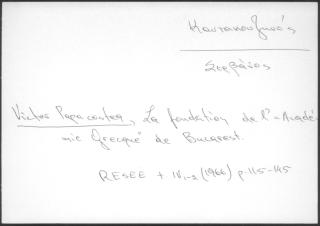 Καντακουζηνός
Σερβάνος
Victor Papacostea, La fondation de l'«Acadé
mie Grecque» de Bucarest.
RESEE t IV, 1-2 (1966) p. 115-145